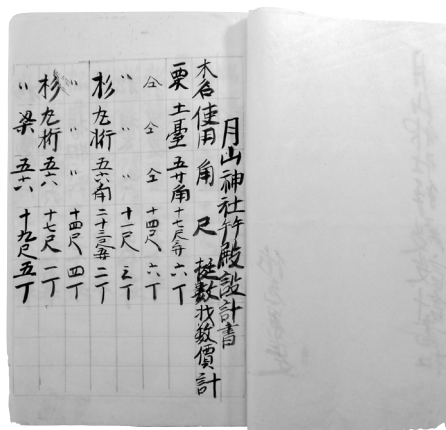 月山神社弊殿設計書
木名使用角尺挺数才数價計
栗土臺五廿角十七尺六丁
仝仝仝十四尺六丁
〃〃〃十一尺三丁
杉丸桁五六角二十三尺二丁
〃〃〃十四尺四丁
杉丸桁五六十七尺二丁
〃梁五六十九尺五丁